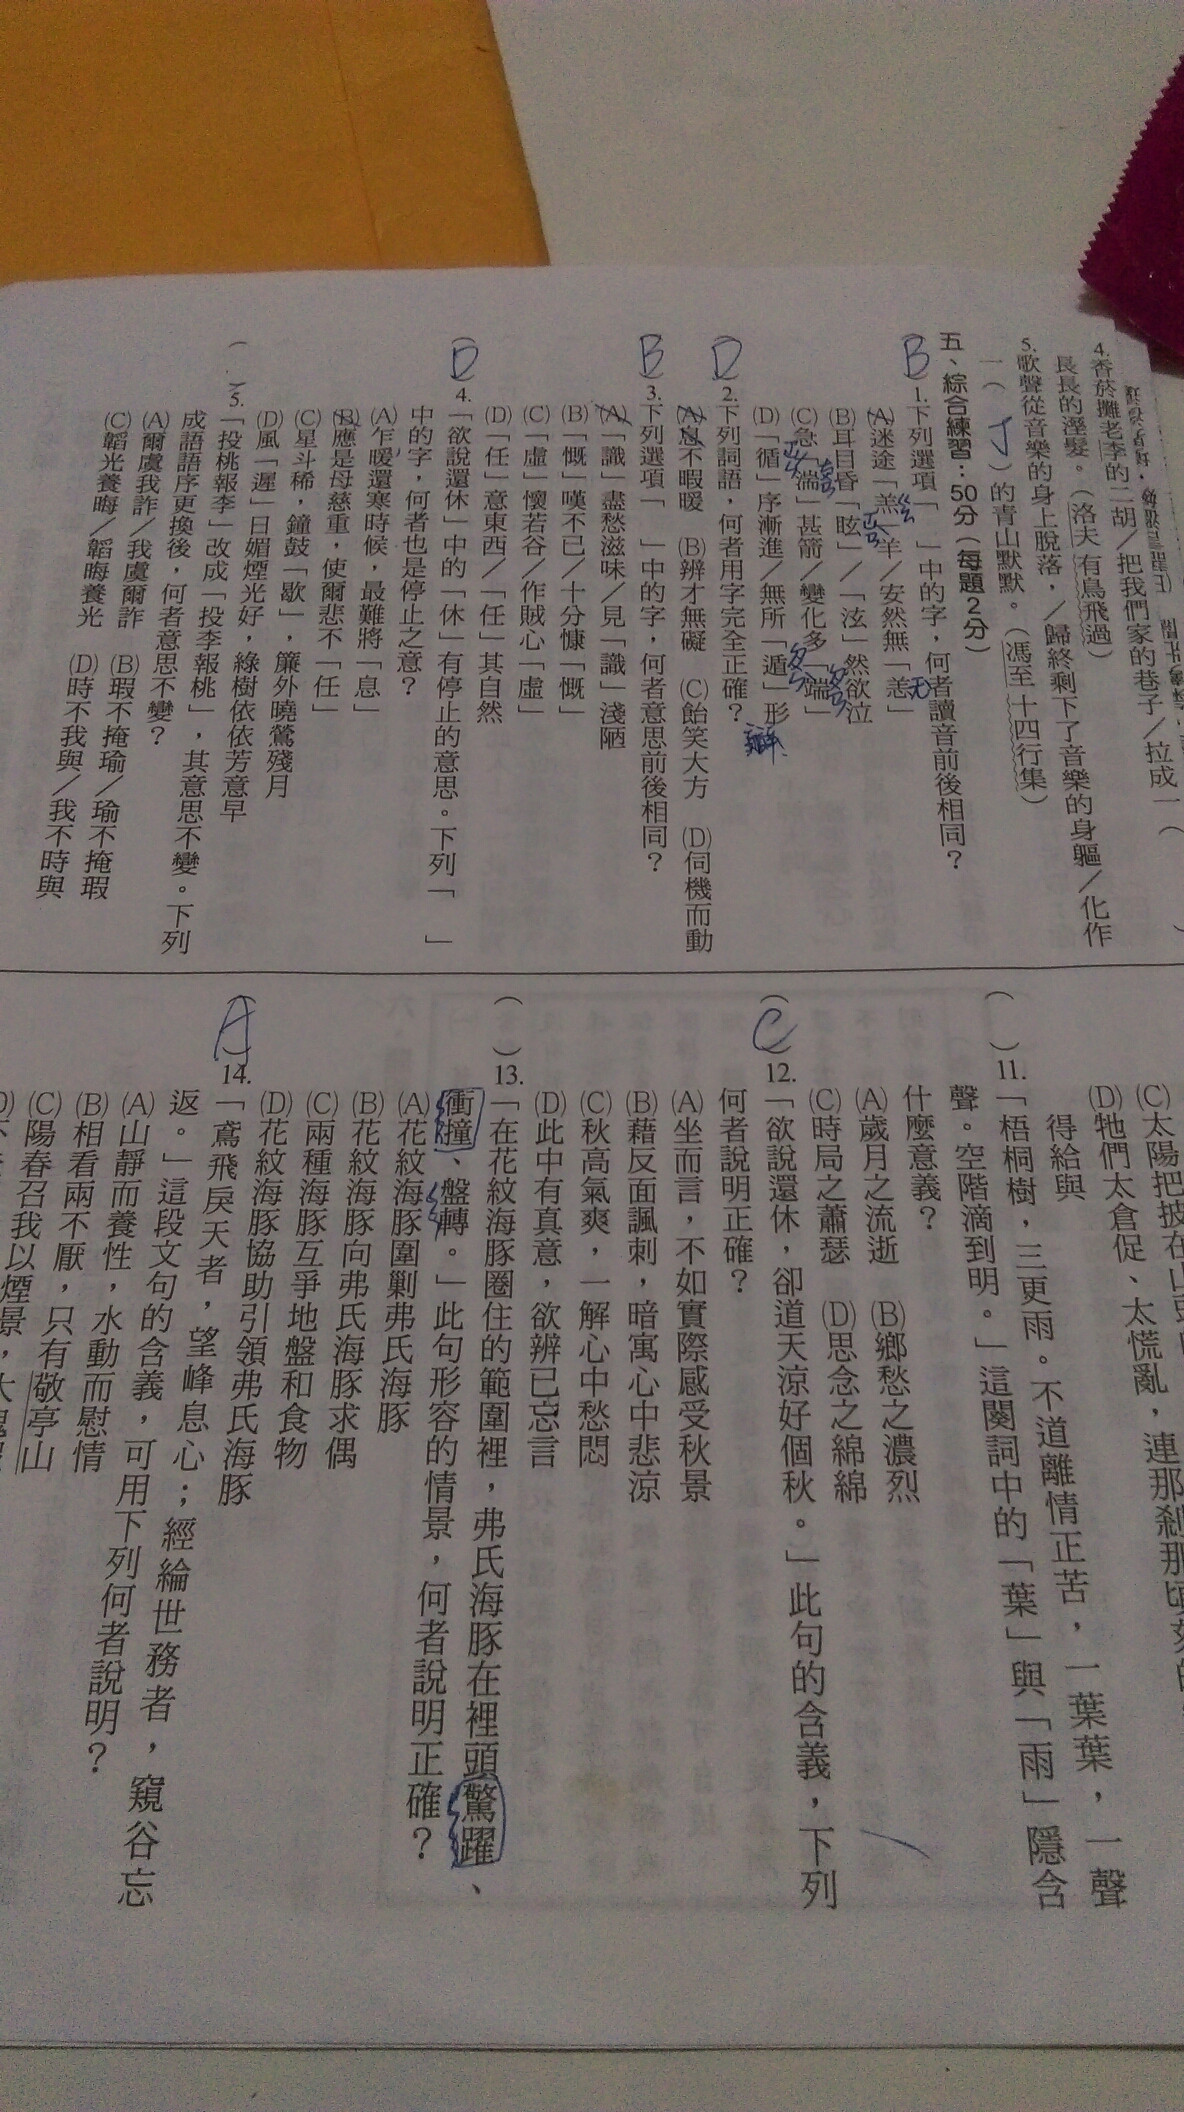 4. 香菸攤老李的二胡/把我們家的巷子/拉成一(
長長的溼髮。(洛夫 有鳥飛過)
5. 歌聲從音樂的身上脫落,/歸終剩下了音樂的身軀/化作
一(丁)的青山默默。(馮至 十四行集)
五、綜合練習:50分(每題2分)
B 1. 下列選項「 」中的字,何者讀音前後相同?
(A)迷途「羔」羊/安然無「恙」
(B)耳目昏「眩」/「泫」然欲泣
(C)急「湍」甚箭/變化多「端」
(D)「循」序漸進/無所「遁」形
D 2. 下列詞語,何者用字完全正確?
(A)息不暇暖 (B)辨才無礙 (C)飴笑大方 (D)伺機而動
B 3. 下列選項「 」中的字,何者意思前後相同?
(A)「識」盡愁滋味/見「識」淺陋
(B)「慨」嘆不已/十分慷「慨」
(C)「虛」懷若谷/作賊心「虛」
(D)「任」意東西/「任」其自然
(D) 4. 「欲說還休」中的「休」有停止的意思。下列「 」
中的字,何者也是停止之意?
(A)乍暖還寒時候,最難將「息」
(B)應是母慈重,使爾悲不「任」
(C)星斗稀,鐘鼓「歇」,簾外曉鶯殘月
(D)風「遲」日媚煙光好,綠樹依依芳意早
( ) 5. 「投桃報李」改成「投李報桃」,其意思不變。下列
成語語序更換後,何者意思不變?
(A)爾虞我詐/我虞爾詐 (B)瑕不掩瑜/瑜不掩瑕
(C)韜光養晦/韜晦養光 (D)時不我與/我不時與
(C)太陽把披在山頭
(D)牠們太倉促、太慌亂,連那剎那頃刻的
得給與
( ) 11. 「梧桐樹,三更雨。不道離情正苦,一葉葉,一聲
聲。空階滴到明。」這闋詞中的「葉」與「雨」隱含
什麼意義?
(A)歲月之流逝 (B)鄉愁之濃烈
(C)時局之蕭瑟 (D)思念之綿綿
(C) 12. 「欲說還休,卻道天涼好個秋。」此句的含義,下列
何者說明正確?
(A)坐而言,不如實際感受秋景
(B)藉反面諷刺,暗寓心中悲涼
(C)秋高氣爽,一解心中愁悶
(D)此中有真意,欲辨已忘言
( ) 13. 「在花紋海豚圈住的範圍裡,弗氏海豚在裡頭驚躍、
衝撞、盤轉。」此句形容的情景,何者說明正確?
(A)花紋海豚圍剿弗氏海豚
(B)花紋海豚向弗氏海豚求偶
(C)兩種海豚互爭地盤和食物
(D)花紋海豚協助引領弗氏海豚
(A) 14. 「鳶飛戾天者,望峰息心;經綸世務者,窺谷忘
返。」這段文句的含義,可用下列何者說明?
(A)山靜而養性,水動而慰情
(B)相看兩不厭,只有敬亭山
(C)陽春召我以煙景,大塊